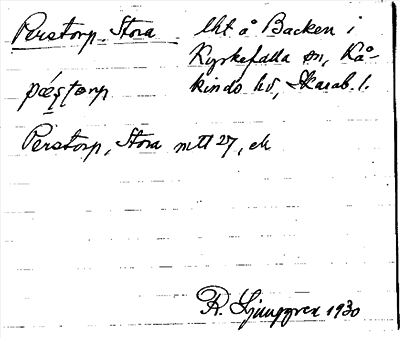 Perstorp, Stora lht å Backen i
Kyrkefalla sn, Kå-
kinds hd, Skarab. l.
pæʂtorp
Perstorp, Stora mtl 27, ek
R. Ljunggren 1930